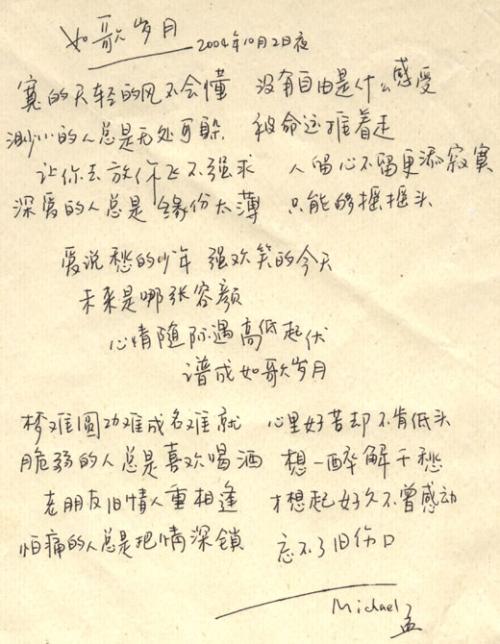 如歌岁月
2004年10月2日夜
宽的天轻的风不会懂 没有自由是什么感受
渺小的人总是无处可躲 被命运推着走
让你去放你飞不强求 人留心不留更添寂寞
深爱的人总是缘份太薄 只能够摇摇头
爱说愁的少年 强欢笑的今天
未来是哪张容颜
心情随际遇高低起伏
谱成如歌岁月
梦难圆功难成名难就 心里好苦却不肯低头
脆弱的人总是喜欢喝酒 想一醉解千愁
老朋友旧情人重相逢 才想起好久不曾感动
怕痛的人总是把情深锁 忘不了旧伤口
Michael 孟